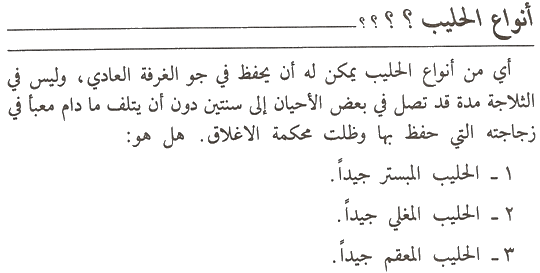 أنواع الحليب ؟ ؟ ؟ ؟
أي من أنواع الحليب يمكن له أن يحفظ في جو الغرفة العادي، وليس في
الثلاجة مدة قد تصل في بعض الأحيان إلى سنتين دون أن يتلف ما دام معبأ في
زجاجته التي حفظ بها وظلت محكمة الاغلاق. هل هو:
١ ـ الحليب المبستر جيداً.
٢ ـ الحليب المغلي جيداً.
٣ ـ الحليب المعقم جيداً.